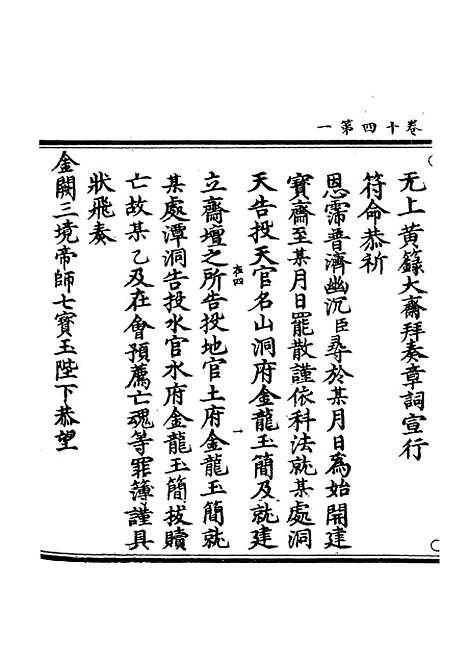 卷十四第一
无上黄籙大齋拜奏章詞宣行
符命恭祈
恩霈普濟幽沉臣尋於某月日為始開建
寶齋至某月日罷散謹依科法就某處洞
天告投天官名山洞府金龍玉簡及就建
在四
立齋壇之所告投地官土府金龍玉簡就
某處潭洞告投水官水府金龍玉簡拔贖
亡故某乙及在會預薦亡魂等罪簿謹具
狀飛奏
金闕三境帝師七寶玉陛下恭望